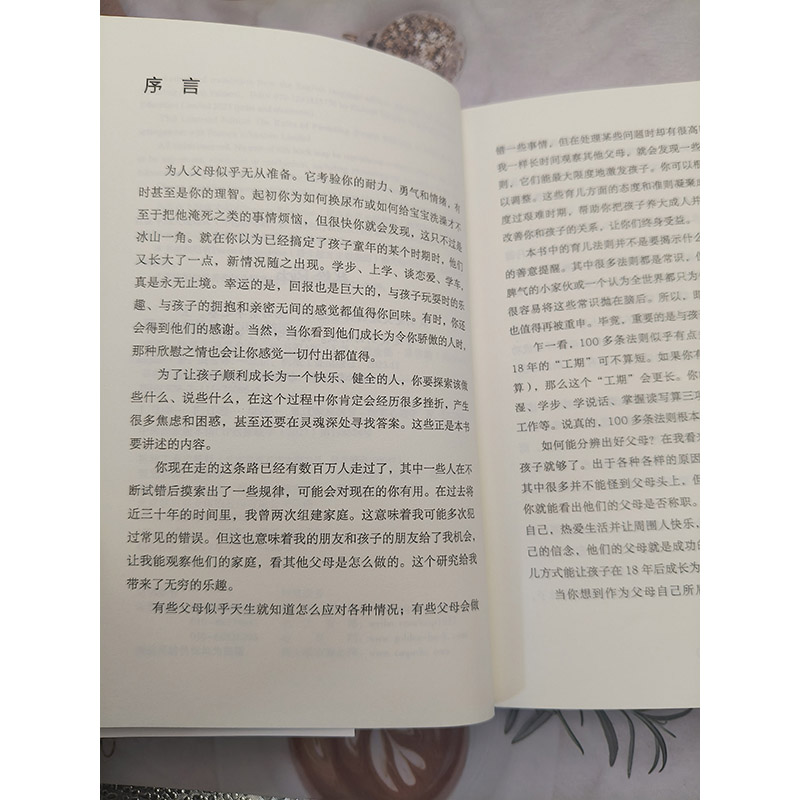 序 言
为人父母似乎无从准备。它考验你的耐力、勇气和情绪，有
时甚至是你的理智。起初你为如何换尿布或如何给宝宝洗澡才不
至于把他淹死之类的事情烦恼，但很快你就会发现，这只不过是
冰山一角。就在你以为已经搞定了孩子童年的某个时期时，他们
又长大了一点，新情况随之出现。学步、上学、谈恋爱、学车，
真是永无止境。幸运的是，回报也是巨大的，与孩子玩耍时的乐
趣、与孩子的拥抱和亲密无间的感觉都值得你回味。有时，你还
会得到他们的感谢。当然，当你看到他们成长为令你骄傲的人时，
那种欣慰之情也会让你感觉一切付出都值得。
为了让孩子顺利成长为一个快乐、健全的人，你要探索该做
些什么、说些什么，在这个过程中你肯定会经历很多挫折，产生
很多焦虑和困惑，甚至还要在灵魂深处寻找答案。这些正是本书
要讲述的内容。
你现在走的这条路已经有数百万人走过了，其中一些人在不
断试错后摸索出了一些规律，可能会对现在的你有用。在过去将
近三十年的时间里，我曾两次组建家庭。这意味着我可能多次犯
过常见的错误。但这也意味着我的朋友和孩子的朋友给了我机会，
让我能观察他们的家庭，看其他父母是怎么做的。这个研究给我
带来了无穷的乐趣。
有些父母似乎天生就知道怎么应对各种情况；有些父母会做
错一些事情，但在处理某些问题时却有很高
我一样长时间观察其他父母，就会发现一些
则，它们能最大限度地激发孩子。你可以根
以调整。这些育儿方面的态度和准则凝聚成
度过艰难时期，帮助你把孩子养大成人并
改善你和孩子的关系，让你们终身受益。
本书中的育儿法则并不是要揭示什么
的善意提醒。其中很多法则都是常识，但
脾气的小家伙或一个认为全世界都只为
很容易将这些常识抛在脑后。所以，即
也值得再被重申。毕竟，重要的是与孩
乍一看，100 多条法则似乎有点
18 年的“工期”可不算短。如果你有
算），那么这个“工期”会更长。你
湿、学步、学说话、掌握读写算三项
工作等。说真的，100 多条法则根本
如何能分辨出好父母？在我看来
孩子就够了。出于各种各样的原因
其中很多并不能怪到父母头上，但
你就能看出他们的父母是否称职。
自己，热爱生活并让周围人快乐，
己的信念，他们的父母就是成功的
儿方式能让孩子在 18 年后成长为
当你想到作为父母自己所